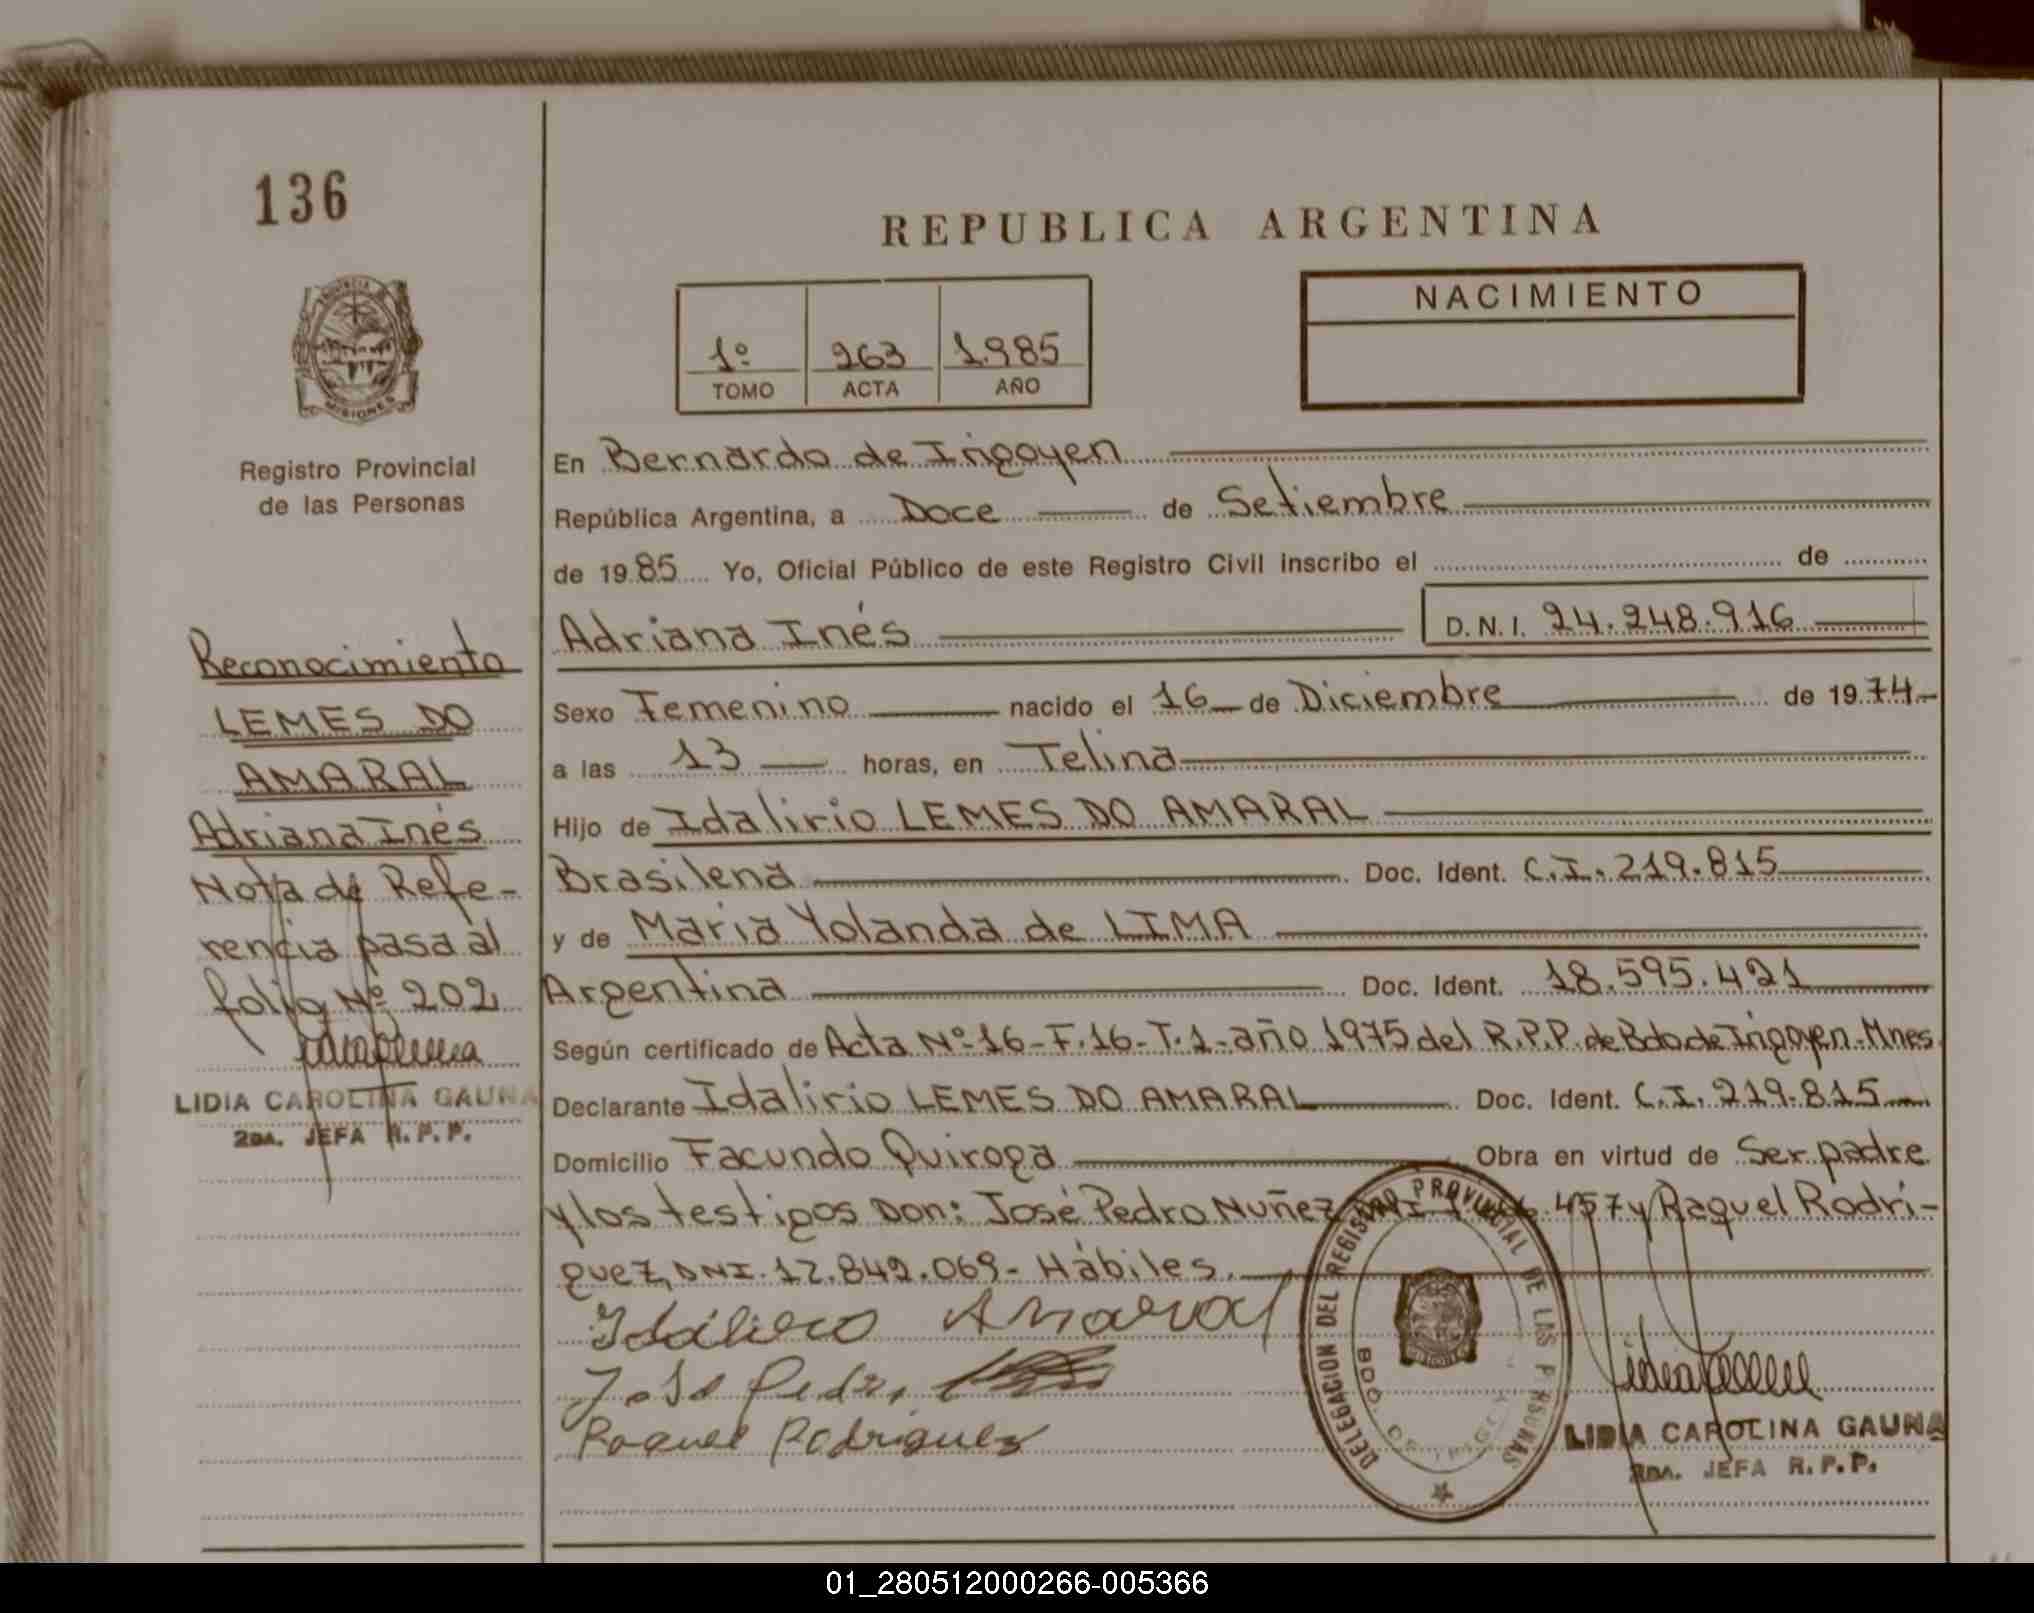 136
REPUBLICA ARGENTINA
NACIMIENTO
1º 263 1.985
TOMO ACTA AÑO
MISIONES
Registro Provincial
de las Personas
En Bernardo de Irigoyen
República Argentina, a Doce de Setiembre
de 1985 Yo, Oficial Público de este Registro Civil inscribo el de
Adriana Inés D.N.I. 24.248.916
Sexo Femenino nacido el 16 de Diciembre de 1974
a las 13 horas, en Telina
Hijo de Idalirio LEMES DO AMARAL
Brasilena Doc. Ident. C.I. 219.815
y de Maria Yolanda de LIMA
Argentina Doc. Ident. 18.595.421
Según certificado de Acta Nº 16-F.16-T.1-año 1975 del R.P.P. de Bdo de Irigoyen-Mnes.
Declarante Idalirio LEMES DO AMARAL Doc. Ident. C.I. 219.815
Domicilio Facundo Quiroga Obra en virtud de Ser padre
y los testigos Don: José Pedro Nuñez 457 y Raquel Rodri-
guez, DNI. 12.842.069- Hábiles.
Amaral
José Pedro
Raquel Rodriguez
LIDIA CAROLINA GAUNA
2DA. JEFA R.P.P.
DELEGACION DEL REGISTRO PROVINCIAL DE LAS PERSONAS
BDO. DE IRIGOYEN
Reconocimiento
LEMES DO
AMARAL
Adriana Inés
Nota de Refe-
rencia pasa al
folio Nº 202
LIDIA CAROLINA GAUNA
2DA. JEFA R.P.P.
01_280512000266-005366